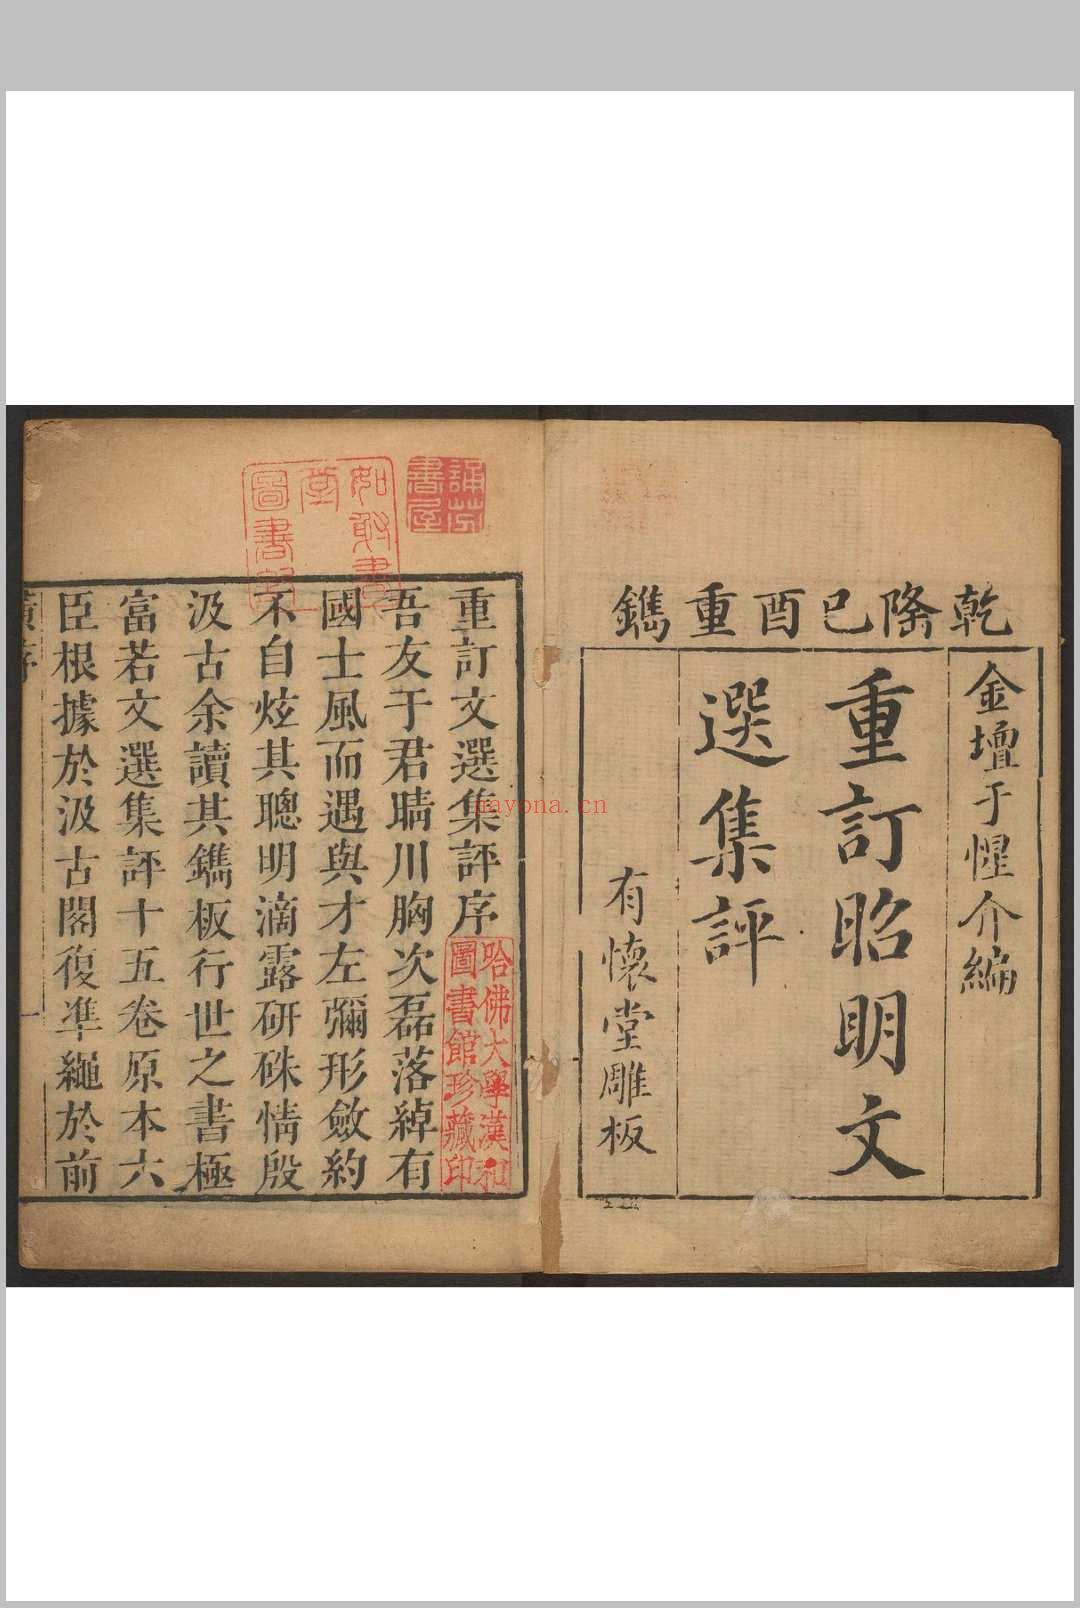 乾隆己酉重鐫
金壇于惺介編
重訂昭明文
選集評
有懷堂雕板
誦芬
書屋
如
書
堂
圖書
重訂文選集評序
哈佛大學漢和
圖書館珍藏印
吾友于君晴川胸次磊落綽有
國士風而遇與才左彌形斂約
不自炫其聰明滴露研硃情殷
汲古余讀其鐫板行世之書極
富若文選集評十五卷原本六
臣根據於汲古閣復準繩於前
序
一
nayona.cn